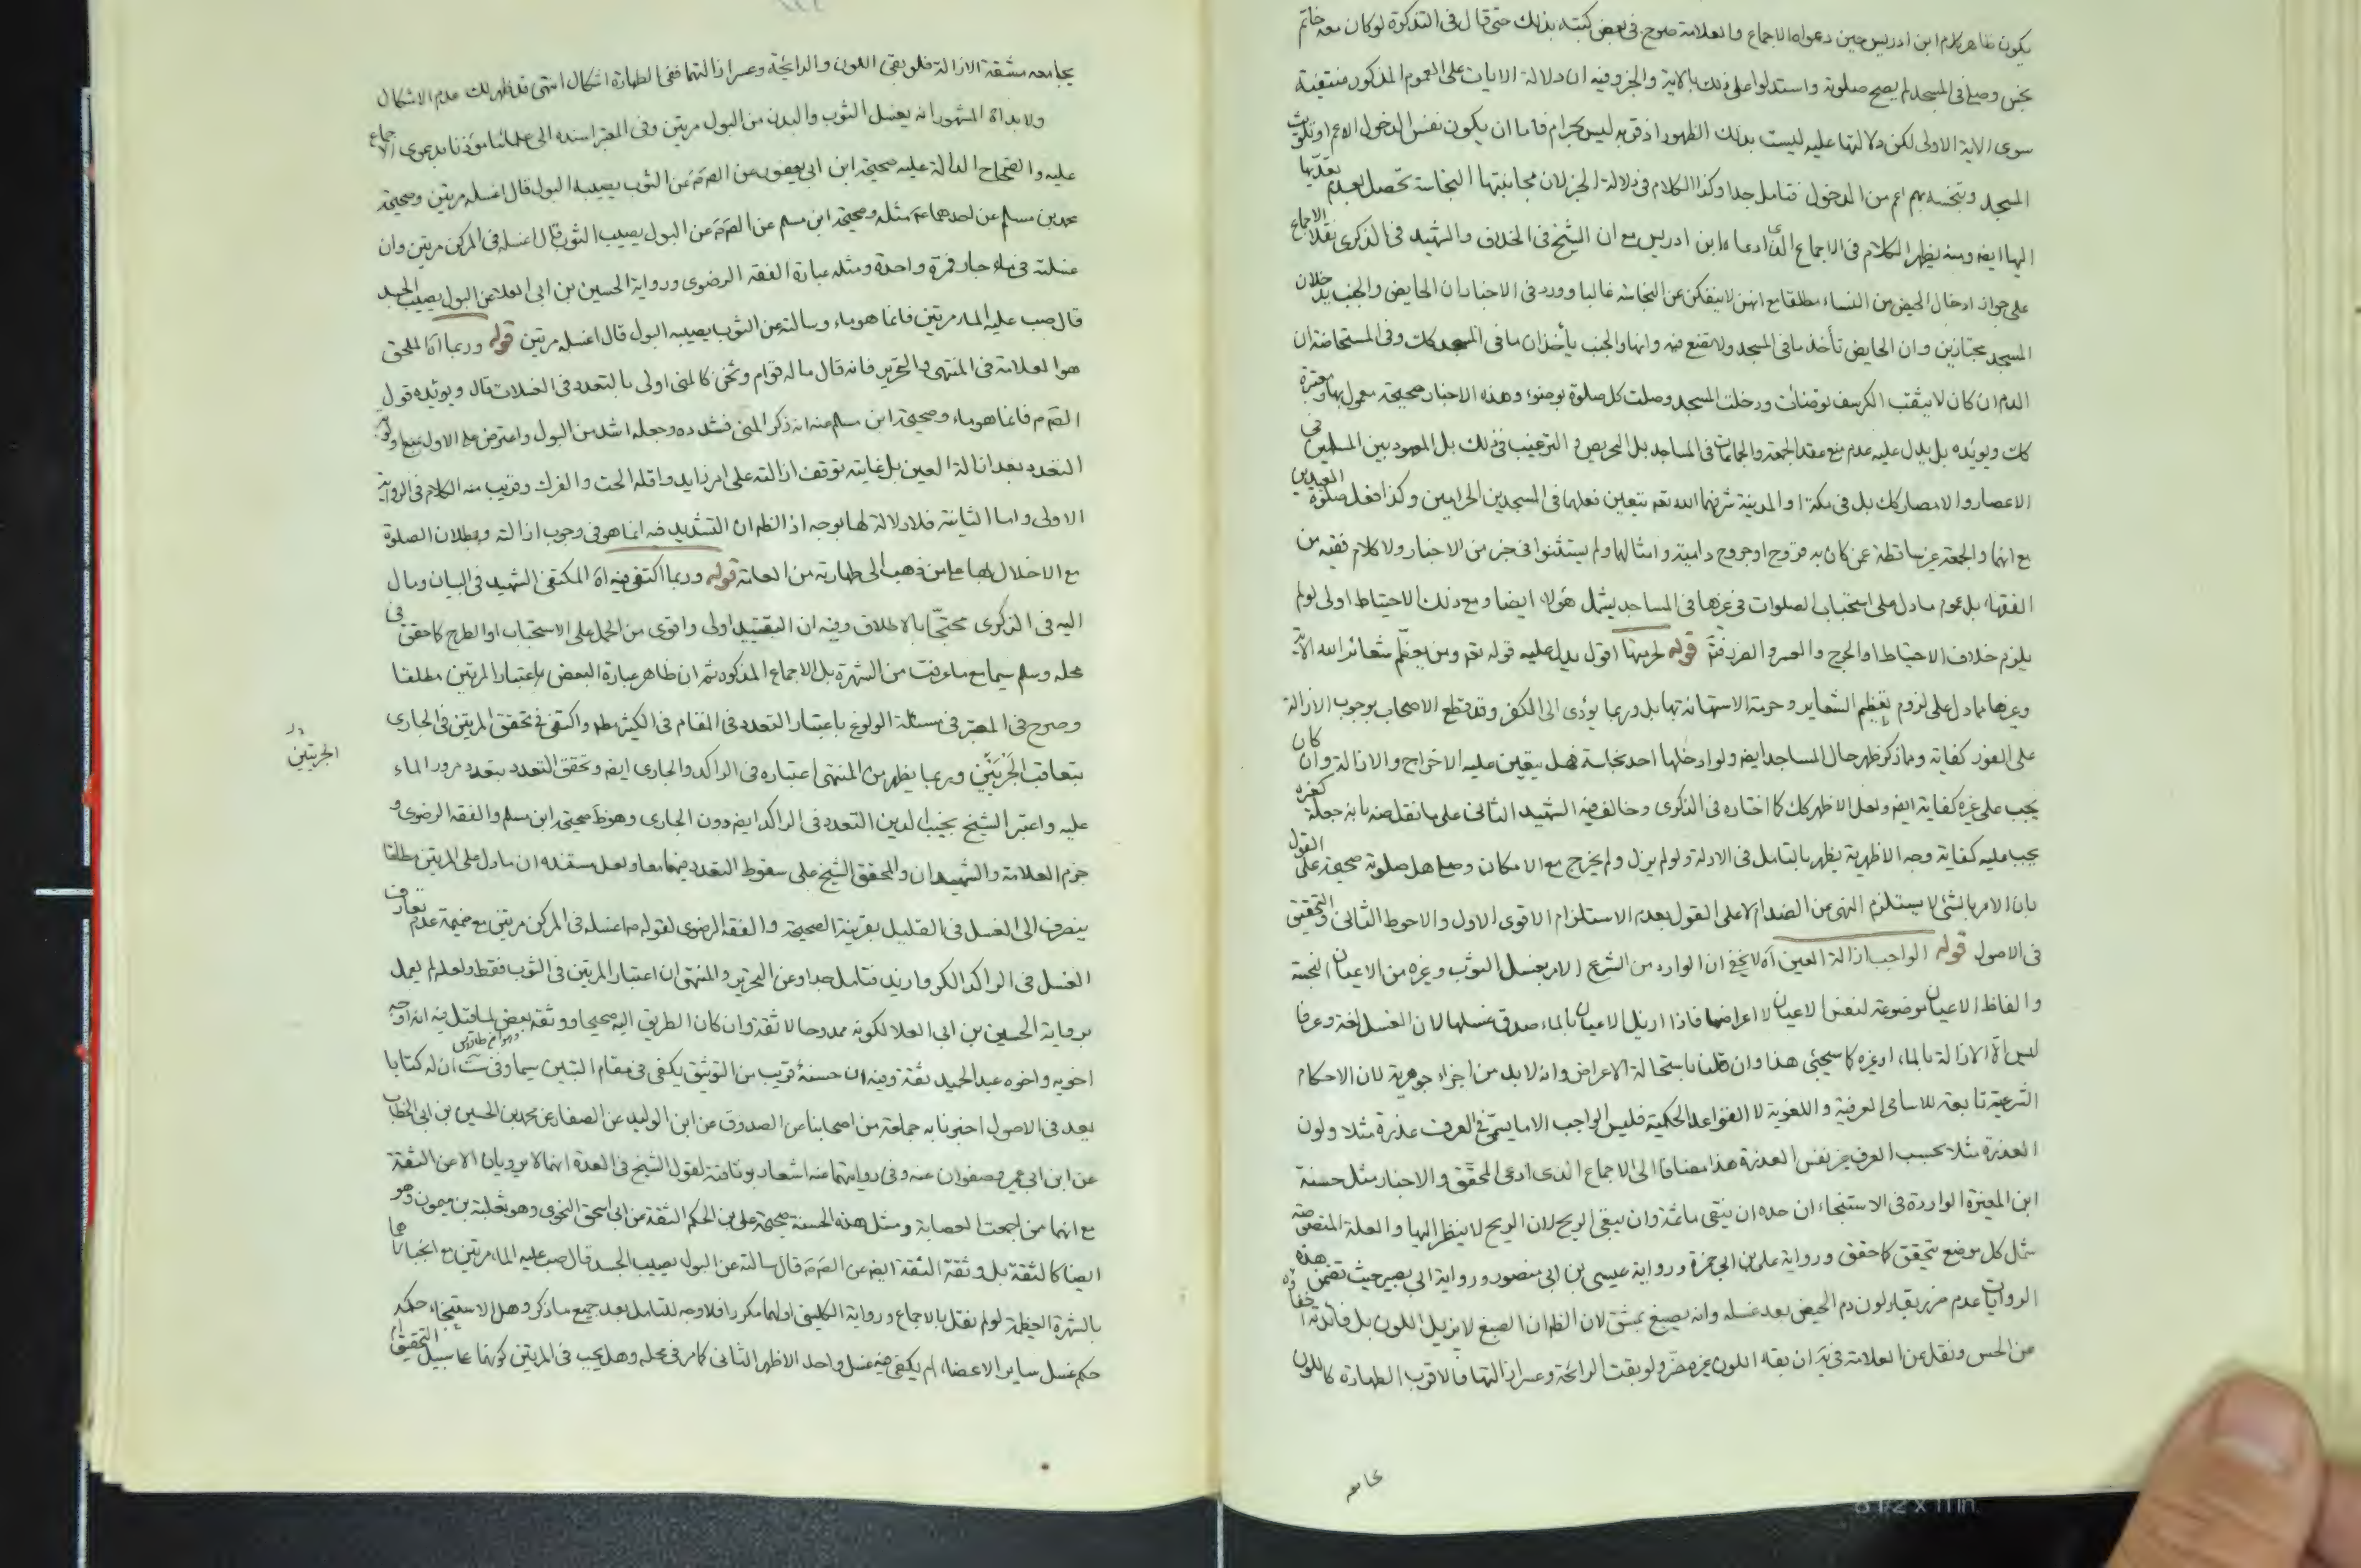 يكون ظاهر كلام ابن ادريس حين دعواه الاجماع والعلامة صرح في بعض كتبه بذلك حتى قال في التذكرة لو كان معه خاتم
نجس وصلى في المسجد لم يصح صلوته واستدلوا على ذلك بالاية والخبر وفيه ان دلالة الايات على العموم المذكور منتفية
سوى الاية الاولى لكن دلالتها عليه ليست بذلك الظهور اذ قربه ليس بحرام فاما ان يكون نفس الدخول الاعم او تلويث
المسجد وتنجسه بهم اعم من الدخول فتامل جدا وكذا الكلام في دلالة الخبر لان مجانبتها النجاسة تحصل بعدم تعديها
اليها ايضا ومنه يظهر الكلام في الاجماع الذي ادعاه ابن ادريس مع ان الشيخ في الخلاف والشهيد في الذكرى نقلا الاجماع
على جواز ادخال الحيض من النساء مطلقا مع انهن لا ينفكن عن النجاسة غالبا وورد في الاخبار ان الحايض والجنب يدخلان
المسجد مجتازين وان الحايض تأخذ ما في المسجد ولا تضع فيه وانها والجنب يأخذان ما في المسجد كك وفي المستحاضة ان
الدم ان كان لا يثقب الكرسف توضأت ودخلت المسجد وصلت كل صلوة بوضوء وهذه الاخبار صحيحة معمول بها ومعتبرة
كك ويؤيده بل يدل عليه عدم منع عقد الجمعة والجماعات في المساجد بل التحريص و الترغيب في ذلك بل المعهود بين المسلمين في
الاعصار والامصار كك بل في مكة او المدينة شرفهما الله تعم يتعين فعلها في المسجدين الحرامين وكذا فعل صلوة العيدين
مع انهما والجمعة غير ساقطة عمن كان به قروح او جروح دامية وامثالها ولم يستثنوا في خبر من الاخبار ولا كلام فقيه من
الفقهاء بل عموم ما دل على استحباب الصلوات في غيرها في المساجد يشمل هؤلاء ايضا ومع ذلك الاحتياط اولى لو لم
يلزم خلاف الاحتياط او الحرج والعسر والضرر فتم قوله لحرمتها اقول يدل عليه قوله تعم ومن يعظم شعائر الله الاية
وغيرها مما دل على لزوم تعظيم الشعاير وحرمة الاستهانة بها بل وربما يؤدى الى الكفر وقد قطع الاصحاب بوجوب الازالة
على الفور كفاية ومما ذكر ظهر حال المساجد ايضا ولو ادخلها احد نجاسة فهل يتعين عليه الاخراج والازالة وان كان
يجب على غيره كفاية ايضا ولعل الاظهر كك كما اختاره في الذكرى وخالف فيه الشهيد الثاني على ما نقل عنه بانه جعله كغيره
يجب عليه كفاية وجه الاظهرية يظهر بالتامل في الادلة ولو لم يزل ولم يخرج مع الامكان وصلى هل صلوته صحيحة على القول
بان الامر بالشئ لا يستلزم النهي عن الضد ام لا على القول بعدم الاستلزام الاقوى الاول والاحوط الثاني والتحقيق
في الاصول قوله الواجب ازالة العين اه لا يخفى ان الوارد من الشرع الامر بغسل الثوب وغيره من الاعيان النجسة
والفاظ الاعيان موضوعة لنفس الاعيان لا اعراضها فاذا ازيل الاعيان بالماء صدق غسلها لان الغسل لغة وعرفا
ليس الا الازالة بالماء او غيره كما سيجئ هذا وان قلنا باستحالة الاعراض وانه لا بد من اجزاء جوهرية لان الاحكام
الشرعية تابعة للاسامي العرفية واللغوية لا القواعد الحكمية فليس الواجب الا ما يسمى في العرف عذرة مثلا ولون
العذرة مثلا بحسب العرف غير نفس العذرة هذا مضافا الى الاجماع الذي ادعى المحقق والاخبار مثل حسنة
ابن المغيرة الواردة في الاستنجاء ان حده ان ينقى ما ثمة وان يبقى الريح لان الريح لا ينظر اليها والعلة المنصوصة
تشمل كل موضع يتحقق كما حقق ورواية علي بن ابي حمزة ورواية عيسى بن ابي منصور ورواية ابي بصير حيث تضمن هذه
الروايات عدم ضرر بقاء لون دم الحيض بعد غسله وانه يصبغ بمشق لان الظ ان الصبغ لا يزيل اللون بل فائدته اخفاؤه
عن الحس ونقل عن العلامة في يه ان بقاء اللون غير مضر ولو بقت الرائحة وعسر ازالتها فالاقرب الطهارة كاللون
بجامعه
بجامعه مشقة الازالة فلو بقى اللون والرايحة وعسر ازالتهما ففى الطهارة اشكال انتهى قد ظهر لك عدم الاشكال
ولا بداة المشهور انه يغسل الثوب والبدن من البول مرتين وفي المعتبر اسنده الى علمائنا مؤذنا بدعوى الاجماع
عليه والصحاح الدالة عليه صحيحة ابن ابي يعفور عن الصم عن الثوب يصيبه البول قال اغسله مرتين وصحيحة
محمد بن مسلم عن احدهما عم مثله وصحيحة ابن مسلم عن الصم عن البول يصيب الثوب قال اغسله في المركن مرتين وان
غسلته في ماء جار فمرة واحدة ومثله عبارة الفقه الرضوي ورواية الحسين بن ابي العلا عن البول يصيب الجسد
قال صب عليه الماء مرتين فانما هو ماء وسالته عن الثوب يصيبه البول قال اغسله مرتين قوله وربما اه الملحق
هو العلامة في المنتهى والتحرير فانه قال ما له قوام وثخن كالمنى اولى بالتعدد في الغسلات قال ويؤيده قول
الصم فانما هو ماء وصحيحة ابن مسلم عنه انه ذكر المنى فشدده وجعله اشد من البول واعترض على الاول بمنع اولوية
التعدد بعد ازالة العين بل غايته توقف ازالته على امر زايد واقله الحت والفرك وقريب منه الكلام في الرواية
الاولى واما الثانية فلا دلالة لها بوجه اذ الظم ان التشديد فيه انما هو في وجوب ازالته وبطلان الصلوة
مع الاخلال بها على من ذهب الى طهارته من العامة قوله وربما اكتفى فيه اه المكتفى الشهيد في البيان ومال
اليه في الذكرى محتجا بالاطلاق وفيه ان التقييد اولى واقوى من الحمل على الاستحباب او الطرح كما حقق في
محله وسلم سيما مع ما عرفت من الشهرة بل الاجماع المذكور ثم ان ظاهر عبارة البعض اعتبار المرتين مطلقا
وصرح في المعتبر في مسئلة الولوغ باعتبار التعدد في المقام في الكثير مطم واكتفى في تحقق المرتين في الجارى
بتعاقب الجَرْيَتَيْن وربما يظهر من المنتهى اعتباره في الراكد والجارى ايضا وتحقق التعدد بتعدد مرور الماء
الجريتين
عليه واعتبر الشيخ نجيب الدين التعدد في الراكد ايضا دون الجارى وهو ظ صحيحة ابن مسلم والفقه الرضوى و
جزم العلامة والشهيدان والمحقق الشيخ على سقوط التعدد فيهما معا ولعل مستنده ان ما دل على المرتين مطلقا
ينصرف الى الغسل في القليل بقرينة الصحيحة والفقه الرضوى لقوله عم اغسله في المركن مرتين مع ضميمة عدم تعارف
الغسل في الراكد الكر وازيد فتامل جدا وعن التحرير والمنتهى ان اعتبار المرتين في الثوب فقط ولعله لم يعمل
برواية الحسين بن ابي العلا لكونه ممدوحا لا ثقة وان كان الطريق اليه صحيحا ووثقه بعض لما قيل فيه انه اوجه
اخويه واخوه عبد الحميد ثقة وفيه ان حسنة قريب من التوثيق يكفى في مقام التبين سيما وفي ست ان له كتابا
وهو ابن طاوس
يعد في الاصول اخبرنا به جماعة من اصحابنا عن الصدوق عن ابن الوليد عن الصفار عن محمد بن الحسين بن ابي الخطاب
عن ابن ابي عمير وصفوان عنه وفي روايتهما عنه اشعار بوثاقته لقول الشيخ في العدة انهما لا يرويان الا عن الثقة
مع انهما ممن اجمعت العصابة ومثل هذه الحسنة صحيحة علي بن الحكم الثقة عن ابي اسحق النحوى وهو ثعلبة بن ميمون وهو
ايضا كالثقة بل وثقة الثقة ايضا عن الصم قال سالته عن البول يصيب الجسد قال صب عليه الماء مرتين مع انجبارهما
بالشهرة العظيمة لو لم نقل بالاجماع ورواية الكليني اولهما مكررا فلا وجه للتامل بعد جميع ما ذكر وهل الاستنجاء حكمه
حكم غسل ساير الاعضاء ام يكفى فيه غسل واحد الاظهر الثاني كما مر في محله وهل يجب في المرتين كونهما على سبيل التحقيق ام